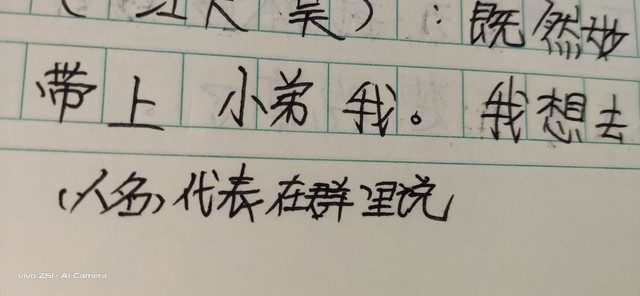 ）：既然
带上 小弟 我。 我想去
（人名）代表在群里说
vivo Z5i · AI Camera